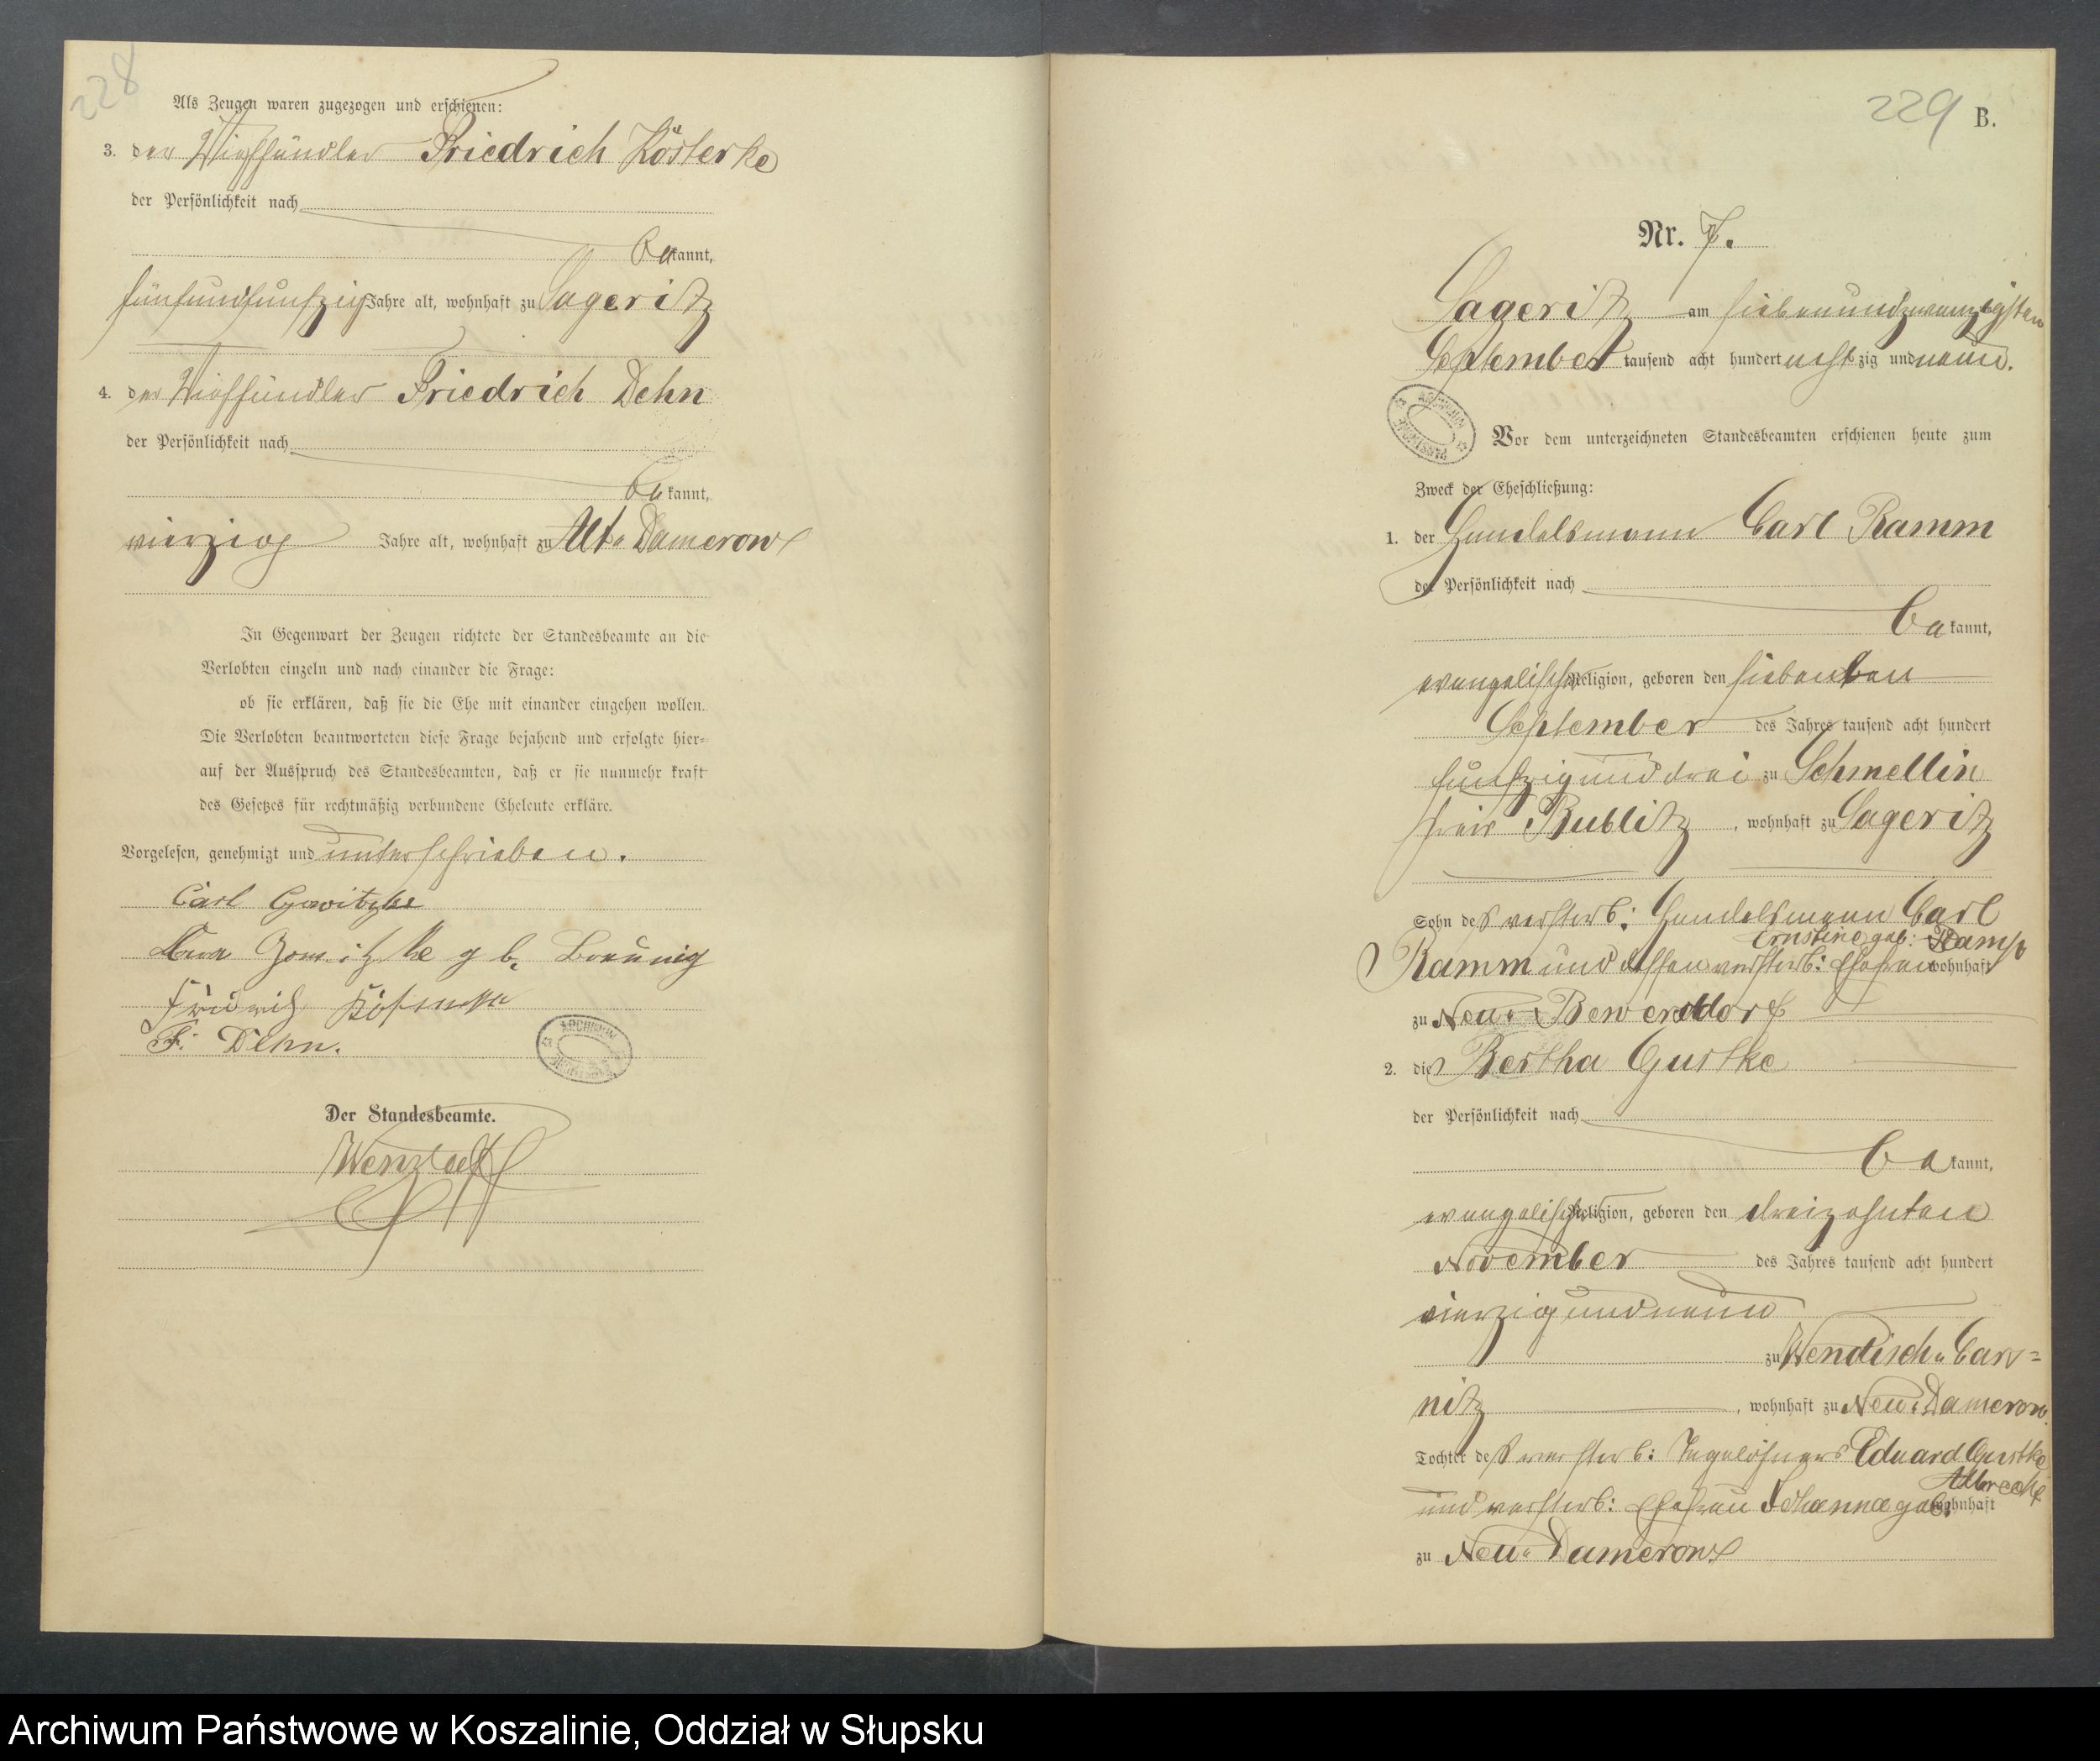 228
Als Zeugen waren zugezogen und erschienen:
3. der Viehhändler Friedrich Kösterke
der Persönlichkeit nach
be kannt,
fünfundfunfzig Jahre alt, wohnhaft zu Sageritz
4. der Viehhändler Friedrich Dehn
der Persönlichkeit nach
be kannt,
vierzig Jahre alt, wohnhaft zu Alt-Damerow
In Gegenwart der Zeugen richtete der Standesbeamte an die
Verlobten einzeln und nach einander die Frage:
ob sie erklären, daß sie die Ehe mit einander eingehen wollen.
Die Verlobten beantworteten diese Frage bejahend und erfolgte hier-
auf der Ausspruch des Standesbeamten, daß er sie nunmehr kraft
des Gesetzes für rechtmäßig verbundene Eheleute erkläre.
Vorgelesen, genehmigt und unterschrieben.
Carl Gowitzke
Gowitzke g b. Breunig
Friedrich Kösterke
F. Dehn.
Der Standesbeamte.
229 B.
Nr. 7.
Sageritz am siebenundzwanzigsten
September tausend acht hundert acht zig und neun.
Vor dem unterzeichneten Standesbeamten erschienen heute zum
Zweck der Eheschließung:
1. der Handelsmann Carl Ramm
der Persönlichkeit nach
be kannt,
evangelischer Religion, geboren den siebenten
September des Jahres tausend acht hundert
funfzig und drei zu Schmellin
Kreis Bublitz, wohnhaft zu Sageritz
Sohn des verstorb: Handelsmann Carl
Ernstine geb: Kamp
Ramm und dessen verstorb: Ehefrau wohnhaft
zu Neu-Bewersdorf
2. die Bertha Gustke
der Persönlichkeit nach
be kannt,
evangelischer Religion, geboren den dreizehnten
November des Jahres tausend acht hundert
vierzig und neun
zu Wendisch-Car-
nitz, wohnhaft zu Neu-Damerow.
Tochter des verstorb: Tagelöhners Eduard Gustke
Albrecht
und verstorb: Ehefrau Johanna geb. wohnhaft
zu Neu-Damerow
Archiwum Państwowe w Koszalinie, Oddział w Słupsku